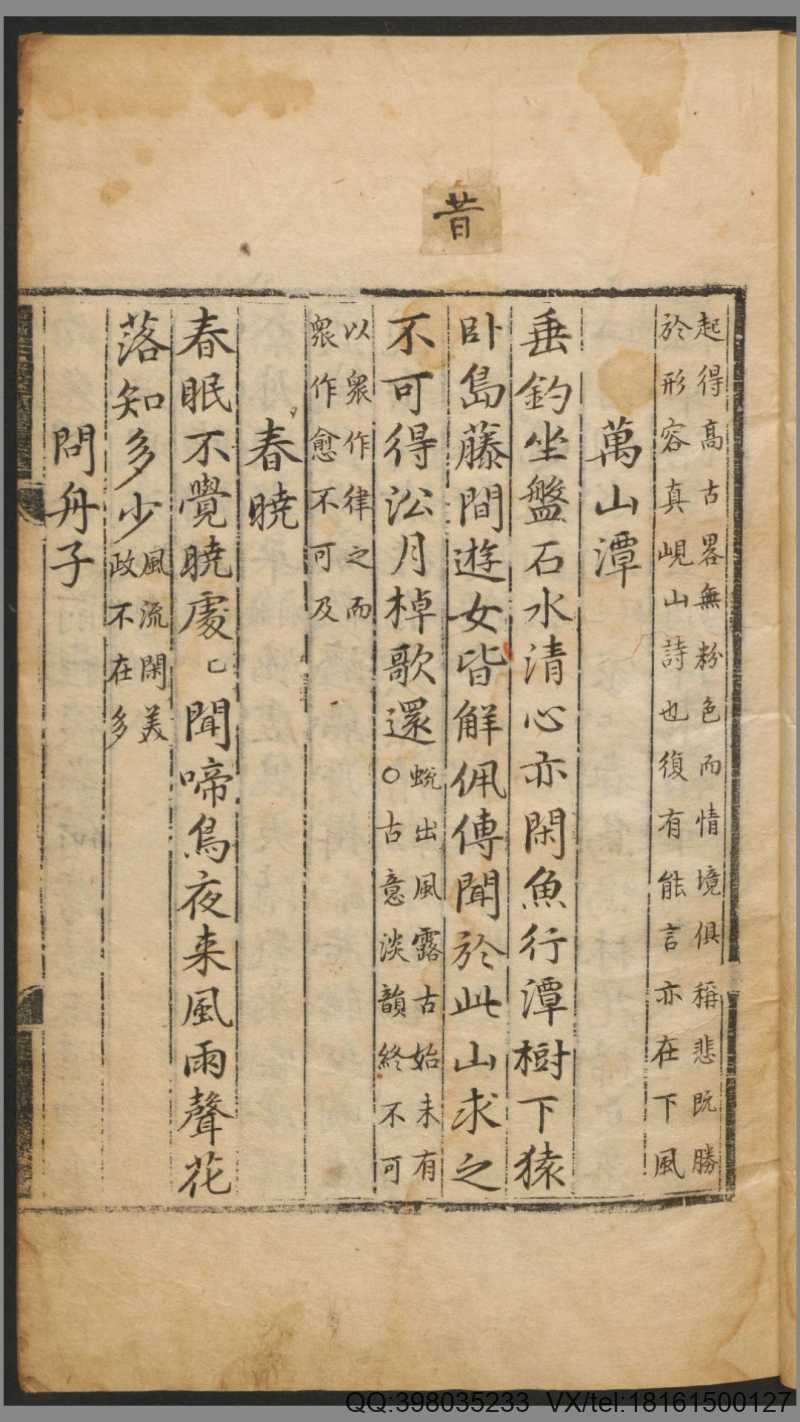 昔
起得高古畧無粉色而情境俱稱悲既勝
於形容真峴山詩也復有能言亦在下風
萬山潭
垂釣坐盤石水清心亦閑魚行潭樹下猿
卧島藤間遊女皆解佩傳聞於此山求之
不可得㳂月棹歌還蜕出風露古始未有
○古意淡韻終不可
以衆作律之而
衆作愈不可及
春曉
春眠不覺曉處已聞啼鳥夜来風雨聲花
落知多少風流閑美
政不在多
問舟子
QQ:398035233 VX/tel:18161500127